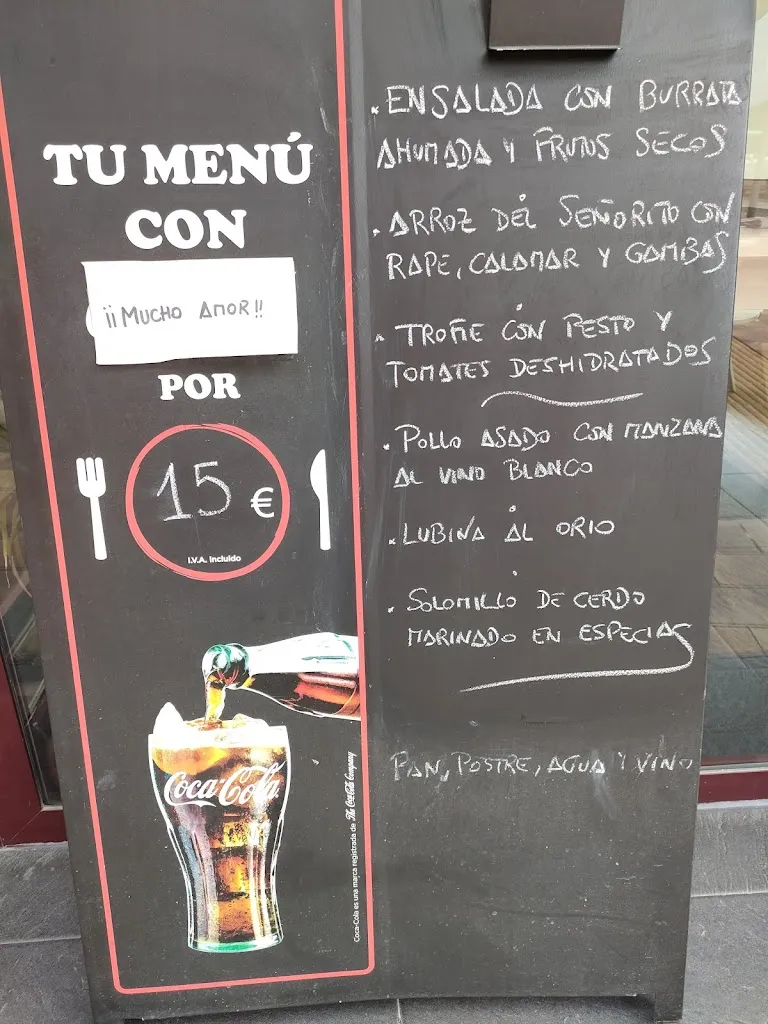 TU MENÚ
CON
¡¡MUCHO AMOR!!
POR
15 €
I.V.A. incluido
Coca-Cola
Coca-Cola es una marca registrada de The Coca-Cola Company
. ENSALADA CON BURRATA
AHUMADA Y FRUTOS SECOS
. ARROZ DEL SEÑORITO CON
RAPE, CALAMAR Y GAMBAS
. TROFIE CON PESTO Y
TOMATES DESHIDRATADOS
. POLLO ASADO CON MANZANA
AL VINO BLANCO
. LUBINA AL ORIO
. SOLOMILLO DE CERDO
MARINADO EN ESPECIAS
PAN, POSTRE, AGUA Y VINO